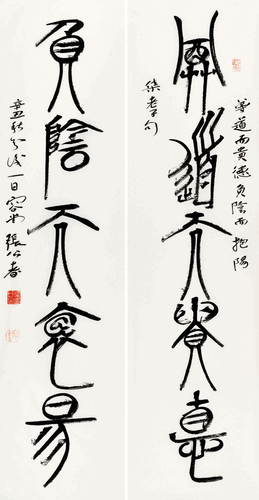 尊道而貴德負陰而抱陽
尊道而貴德
集老子句
負陰而抱陽
辛丑秋分後一日張公者